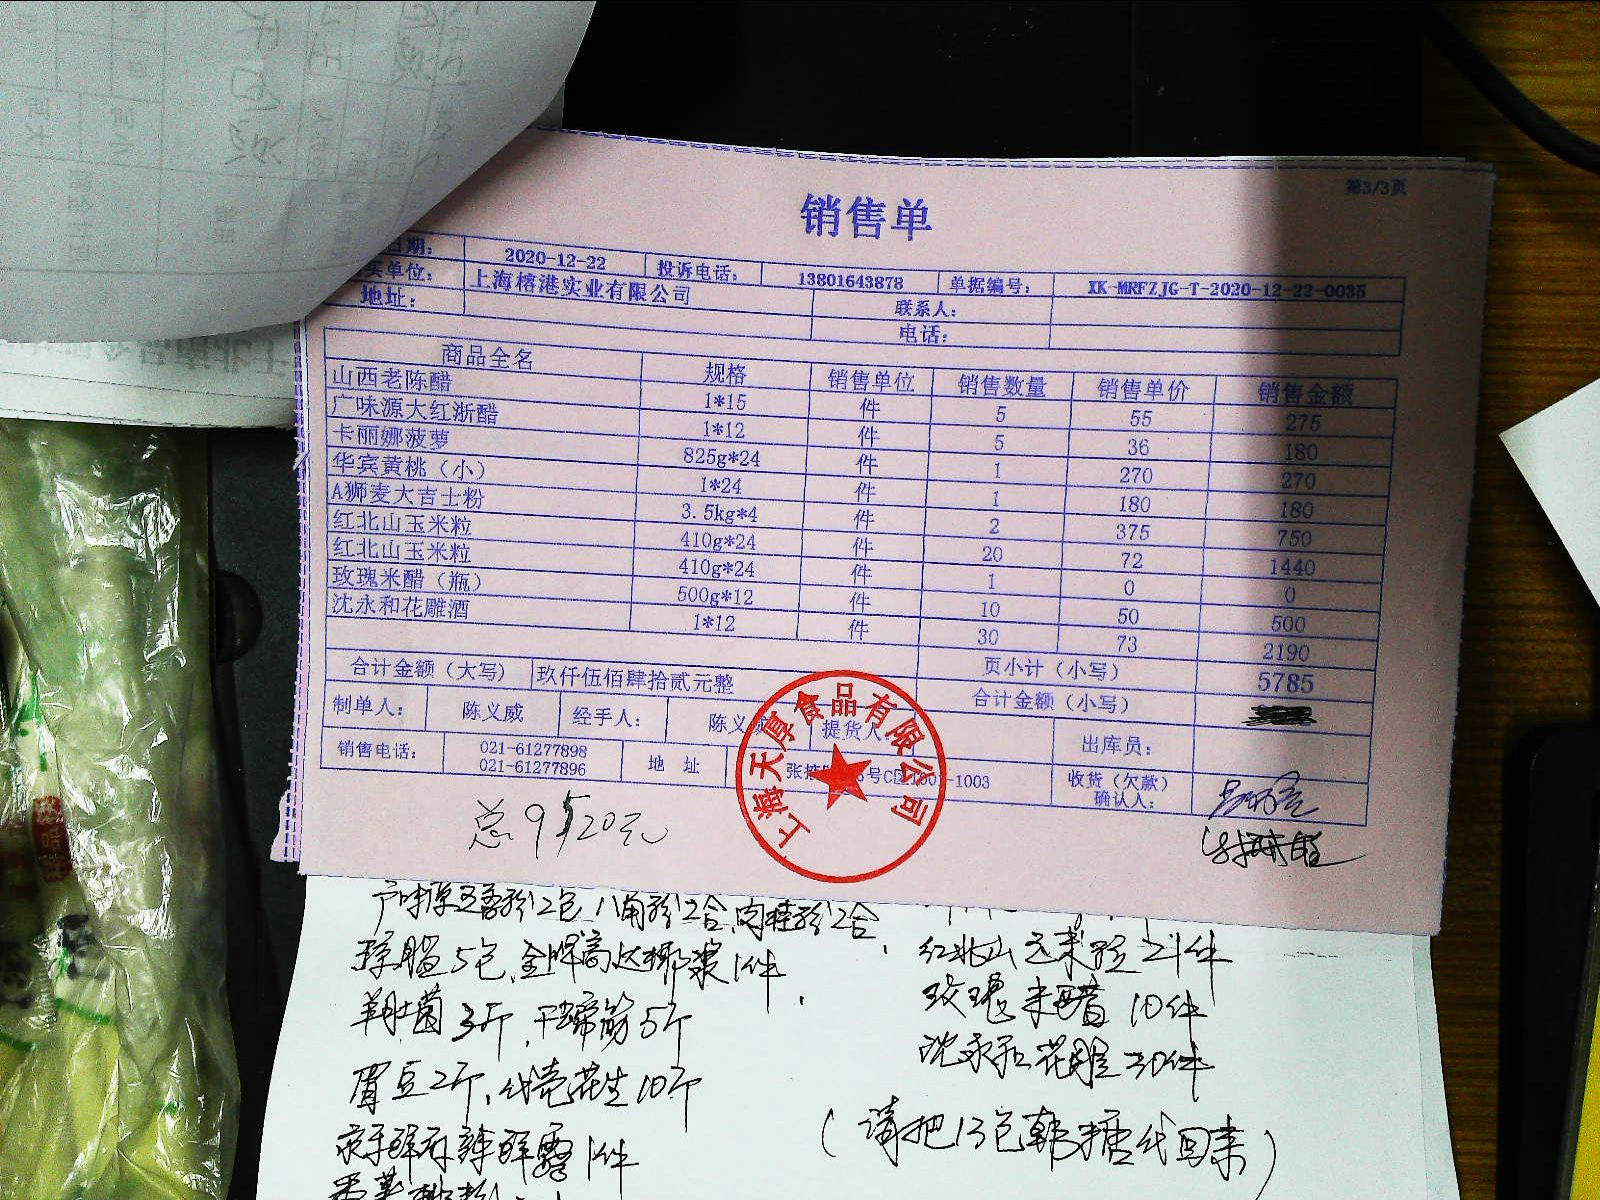 第3/3页
销售单
日期： 2020-12-22 投诉电话： 13801643878 单据编号： XK-MRFZJG-T-2020-12-22-0035
买单位： 上海榕港实业有限公司 联系人：
地址： 电话：
商品全名 规格 销售单位 销售数量 销售单价 销售金额
山西老陈醋 1*15 件 5 55 275
广味源大红浙醋 1*12 件 5 36 180
卡丽娜菠萝 825g*24 件 1 270 270
华宾黄桃（小） 1*24 件 1 180 180
A狮麦大吉士粉 3.5kg*4 件 2 375 750
红北山玉米粒 410g*24 件 20 72 1440
红北山玉米粒 410g*24 件 1 0 0
玫瑰米醋（瓶） 500g*12 件 10 50 500
沈永和花雕酒 1*12 件 30 73 2190
页小计（小写） 5785
合计金额（大写） 玖仟伍佰肆拾贰元整 合计金额（小写）
制单人： 陈义威 经手人： 陈义威 提货人： 出库员：
销售电话： 021-61277898 021-61277896 地 址 号C区1001-1003 收货（欠款）确认人：
上海天厚食品有限公司
总 9520元
广味源五香粉12包 八角粉12合 肉桂粉12合
琼脂5包 金牌高达椰浆1件
羊肚菌3斤 干蹄筋5斤
眉豆2斤、红壳花生10斤
1件
红北山玉米粒21件
玫瑰米醋10件
沈永和花雕30件
（请把13包韩糖代回来）